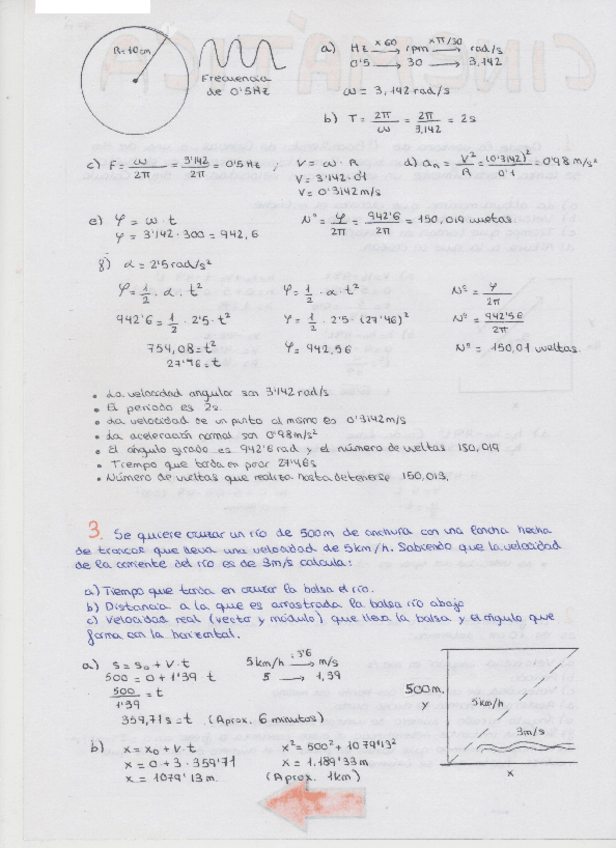 R=10cm
Frecuencia
de 0'5Hz
a) Hz →(x60) rpm →(xπ/30) rad/s
0'5 → 30 → 3,142
ω = 3,142 rad/s
b) T = 2π/ω = 2π/3,142 = 2s
c) F = ω/2π = 3'142/2π = 0'5 Hz ;
V = ω · R
V = 3'142·0'1
V = 0'3142 m/s
d) an = V²/R = (0'3142)²/0'1 = 0'98 m/s²
e) φ = ω · t
φ = 3'142·300 = 942,6
Nº = φ/2π = 942'6/2π = 150,019 vueltas
f) α = 2'5 rad/s²
φ = 1/2 · α · t²
942'6 = 1/2 · 2'5 · t²
754,08 = t²
27'46 = t
φ = 1/2 · α · t²
φ = 1/2 · 2'5 · (27'46)²
φ = 942,56
Nº = φ/2π
Nº = 942'56/2π
Nº = 150,01 vueltas.
• La velocidad angular son 3'142 rad/s
• El periodo es 2s.
• La velocidad de un punto al mismo es 0'3142 m/s
• La aceleración normal son 0'98 m/s²
• El ángulo girado es 942'6 rad y el número de vueltas 150,019
• Tiempo que tarda en parar 27'46s
• Número de vueltas que realiza hasta detenerse 150,013,
3. Se quiere cruzar un río de 500m de anchura con una lancha hecha
de troncos que lleva una velocidad de 5km/h. Sabiendo que la velocidad
de la corriente del río es de 3m/s calcula:
a) Tiempo que tarda en cruzar la balsa el río.
b) Distancia a la que es arrastrada la balsa río abajo
c) Velocidad real (vector y módulo) que lleva la balsa y el ángulo que
forma con la horizontal.
a) s = s₀ + v·t
500 = 0 + 1'39 t
500/1'39 = t
359,71 s = t (Aprox. 6 minutos)
5km/h →(:3'6) m/s
5 → 1,39
500m.
y
5km/h
3m/s
x
b) x = x₀ + v·t
x = 0 + 3·359'71
x = 1079'13m.
x² = 500² + 1079'13²
x = 1.189'33m
(Aprox. 1km)